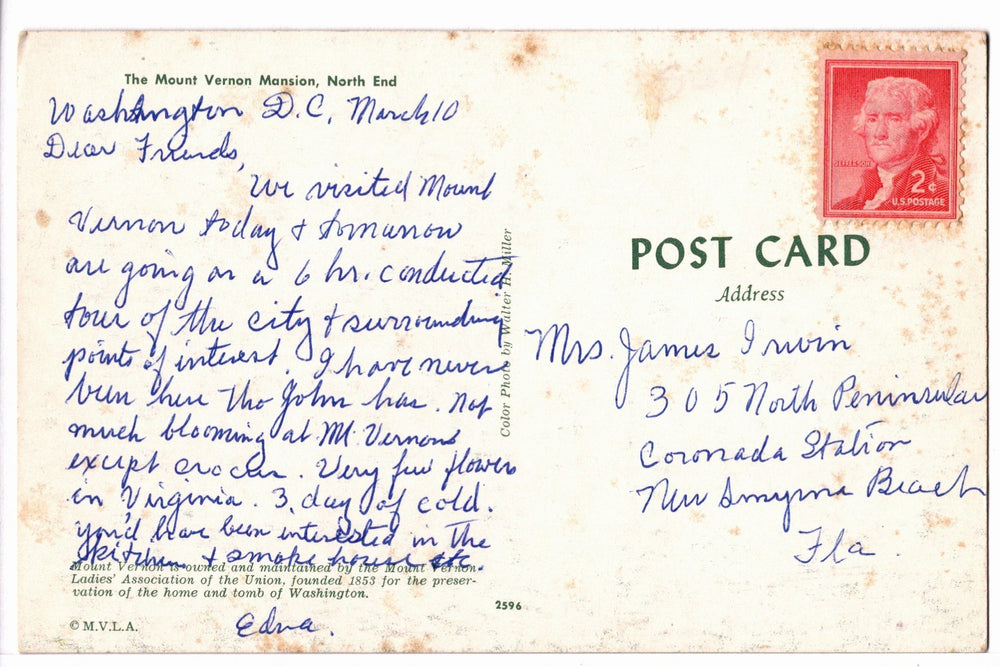 The Mount Vernon Mansion, North End
Washington D.C, March 10
Dear Friends,
We visited Mount
Vernon today & tomorrow
are going on a 6 hr. conducted
tour of the city & surrounding
points of interest. I have never
been here tho John has. Not
much blooming at Mt. Vernon
except crocus. Very few flowers
in Virginia. 3, day of cold.
you'd have been interested in the
kitchen & smoke house etc.
Mount Vernon is owned and maintained by the Mount Vernon
Ladies' Association of the Union, founded 1853 for the preser-
vation of the home and tomb of Washington.
© M.V.L.A.
Edna.
2596
Color Photo by Walter H. Miller
JEFFERSON
2¢
U.S. POSTAGE
POST CARD
Address
Mrs. James Irwin
305 North Peninsular
Coronada Station
New Smyrna Beach
Fla.